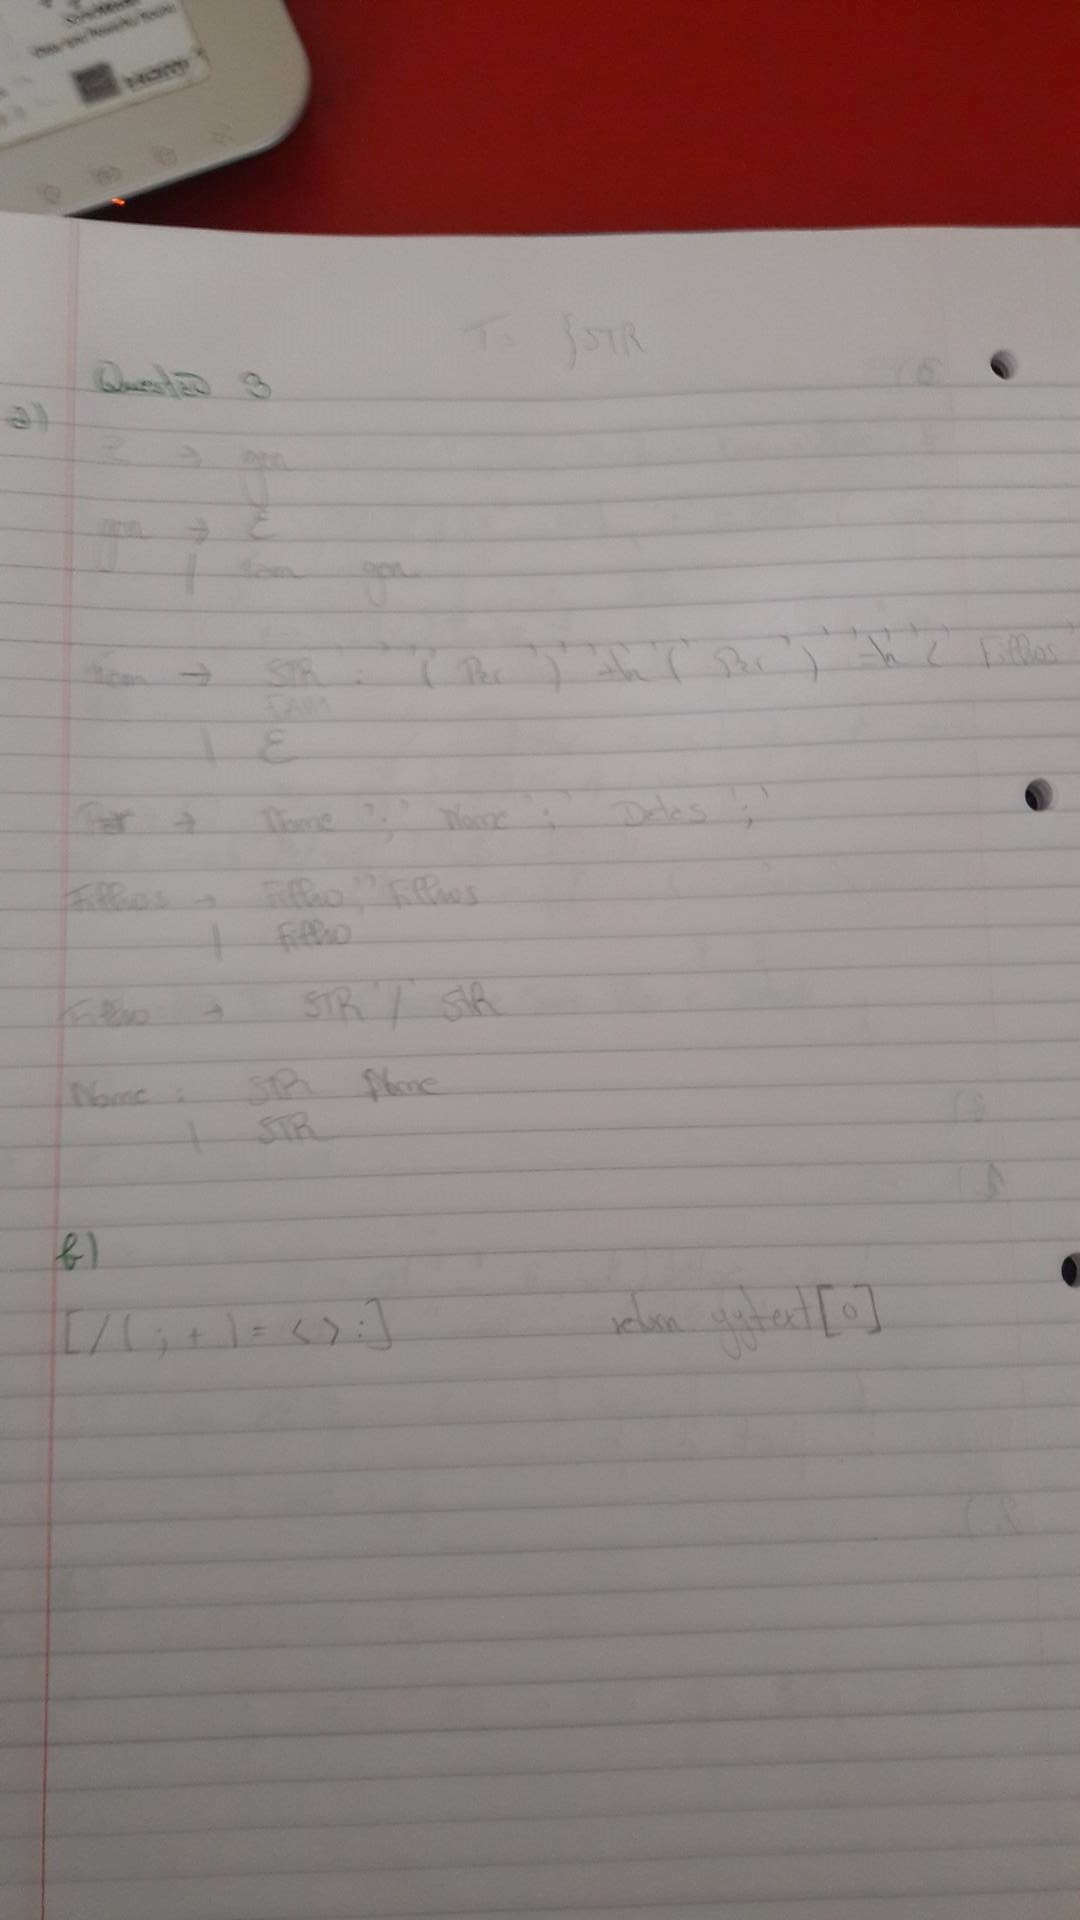 HDMI
T = {STR
Questão 3
a)
Z → gen
gen → ε
| fam gen
fam → STR : '(' Per ')' '(' Per ')' Filhos
FAM
| ε
Per → Nome ';' Nome ';' Datas ';'
Filhos → Filho ',' Filhos
| Filho
Filho → STR '/' STR
Nome : STR Nome
| STR
b)
[/(;+)=<>:] return yytext[0]